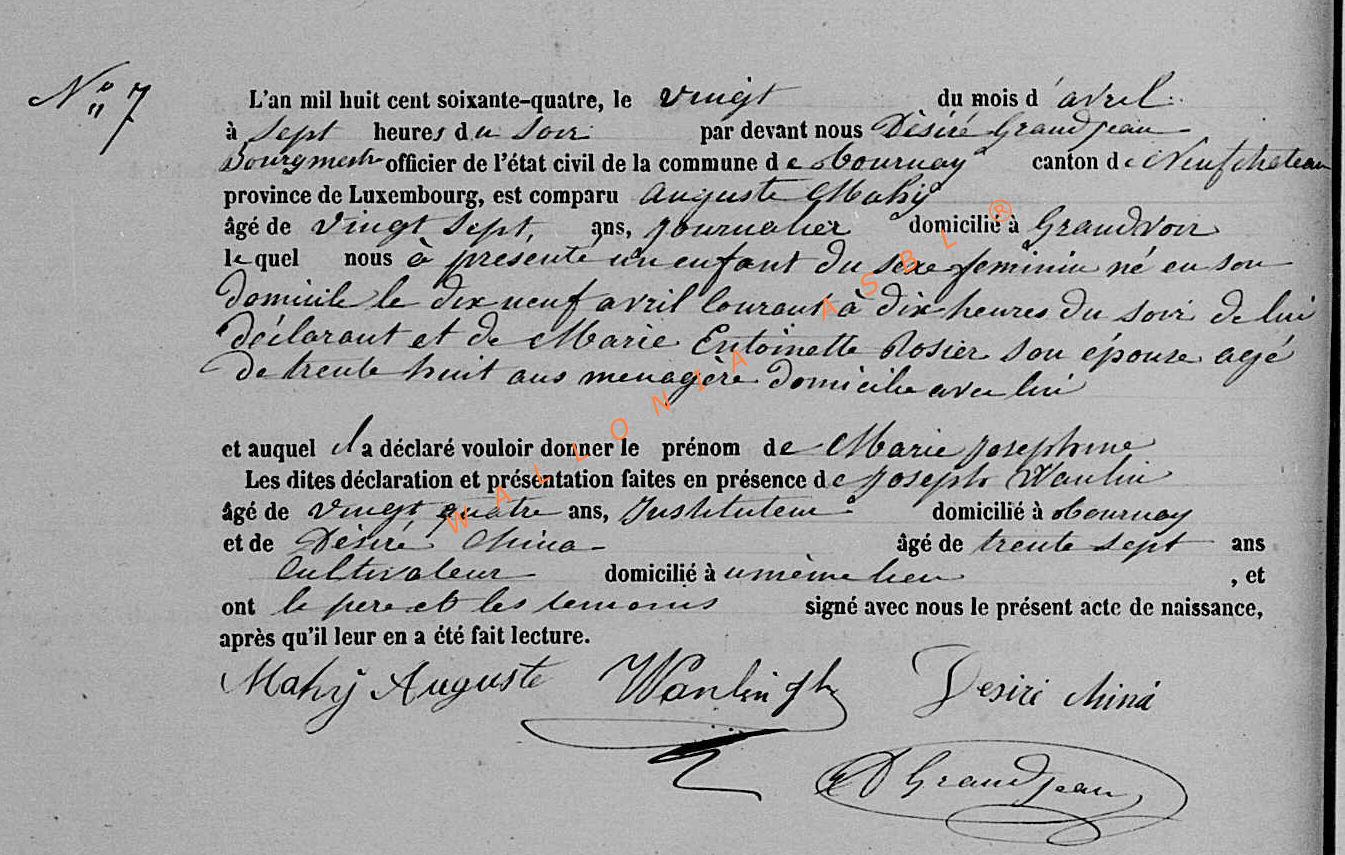 N° 7
L'an mil huit cent soixante-quatre, le vingt du mois d'avril
à sept heures du soir par devant nous Dèsiré Grandjean
Bourgmestre officier de l'état civil de la commune de Tournay canton de Neufchateau
province de Luxembourg, est comparu Auguste Mahy
âgé de vingt sept, ans, journalier domicilié à Grandvoir
lequel nous à présenté un enfant du sexe feminin né en son
domicile le dix neuf avril courant à dix heures du soir de lui
déclarant et de Marie Entoinette Rosier son épouse agé
de trente huit ans menagère domicilie avec lui
et auquel il a déclaré vouloir donner le prénom de Marie Josephine
Les dites déclaration et présentation faites en présence de Joseph Wanlin
âgé de vingt quatre ans, Instituteur domicilié à Tournay
et de Dèsiré China âgé de trente sept ans
Cultivateur domicilié à u même lieu, et
ont le pere et les temoins signé avec nous le présent acte de naissance,
après qu'il leur en a été fait lecture.
Mahy Auguste Wanlin Jh Desiré Chinà
D Grandjean
WALLONIA ASBL ®